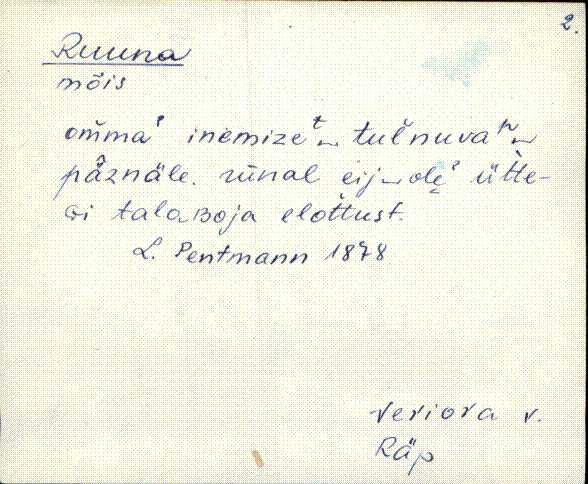 2.
Ruuna
mõis
om̆ma' inemizeᵗ‿ tuĺnuvaᵖ‿
pǟznäle. rūnal eij‿olę' üt̀te-
gi talaʙoja elot̀tust.
L. Pentmann 1878
Veriora v.
Räp